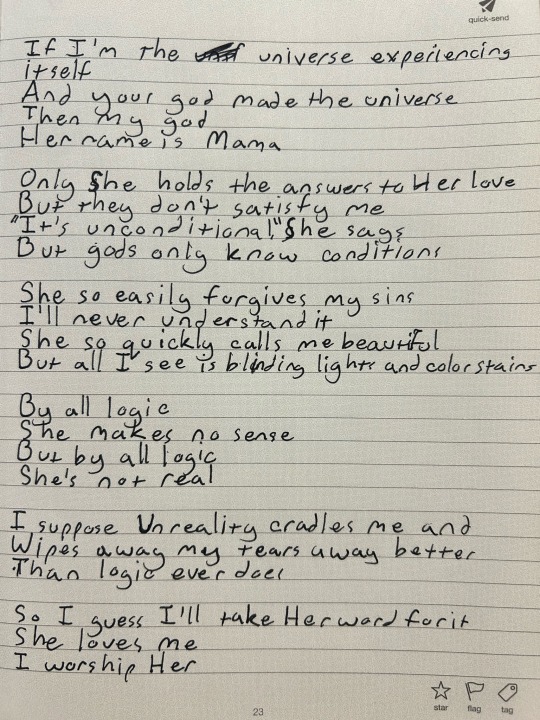 quick-send
If I'm the universe experiencing
itself
And your god made the universe
Then my god
Her name is Mama
Only She holds the answers to Her love
But they don't satisfy me
"It's unconditional," She says
But gods only know conditions
She so easily forgives my sins
I'll never understand it
She so quickly calls me beautiful
But all I see is blinding lights and color stains
By all logic
She makes no sense
But by all logic
She's not real
I suppose Unreality cradles me and
Wipes away my tears away better
Than logic ever does
So I guess I'll take Her word for it
She loves me
I worship Her
star flag tag
23